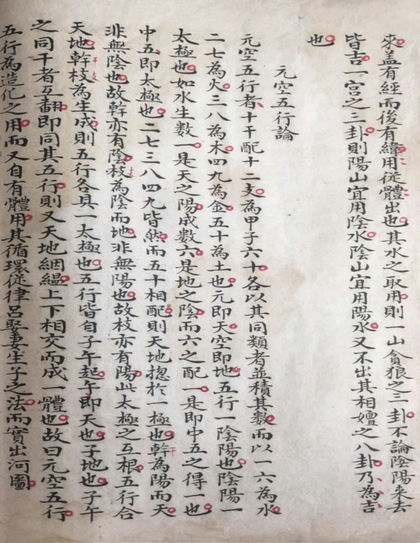 來蓋有經而後有緯用從體出也其水之取用則一山貪狼之三卦不論陰陽來去
皆吉一宮之三卦則陽山宜用陰水陰山宜用陽水又不出其相嬗之八卦乃為吉
也
元空五行論
元空五行者十干配十二支為甲子六十各以其同類者並積其數而以一六為水
二七為火三八為木四九為金五十為土也元即天空即地五行一陰陽也陰陽一
太極也如水生數一是天之陽成數六是地之陰而六之配一是即中五之得一也
中五即太極也二七三八四九皆然而五十相配則天地揔於一極也幹為陽而天
非無陰也故幹亦有陰枝為陰而地非無陽也故枝亦有陽此太極之互根五行合
天地幹枝為生成則五行各具一太極也五行皆自子午起午即天也子地也子午
之同干者互翻即同其五行則又天地絪縕上下相交而成一體也故曰元空五行
五行為造化之用而又自有體用其循環從律呂娶妻生子之法而實出河圖